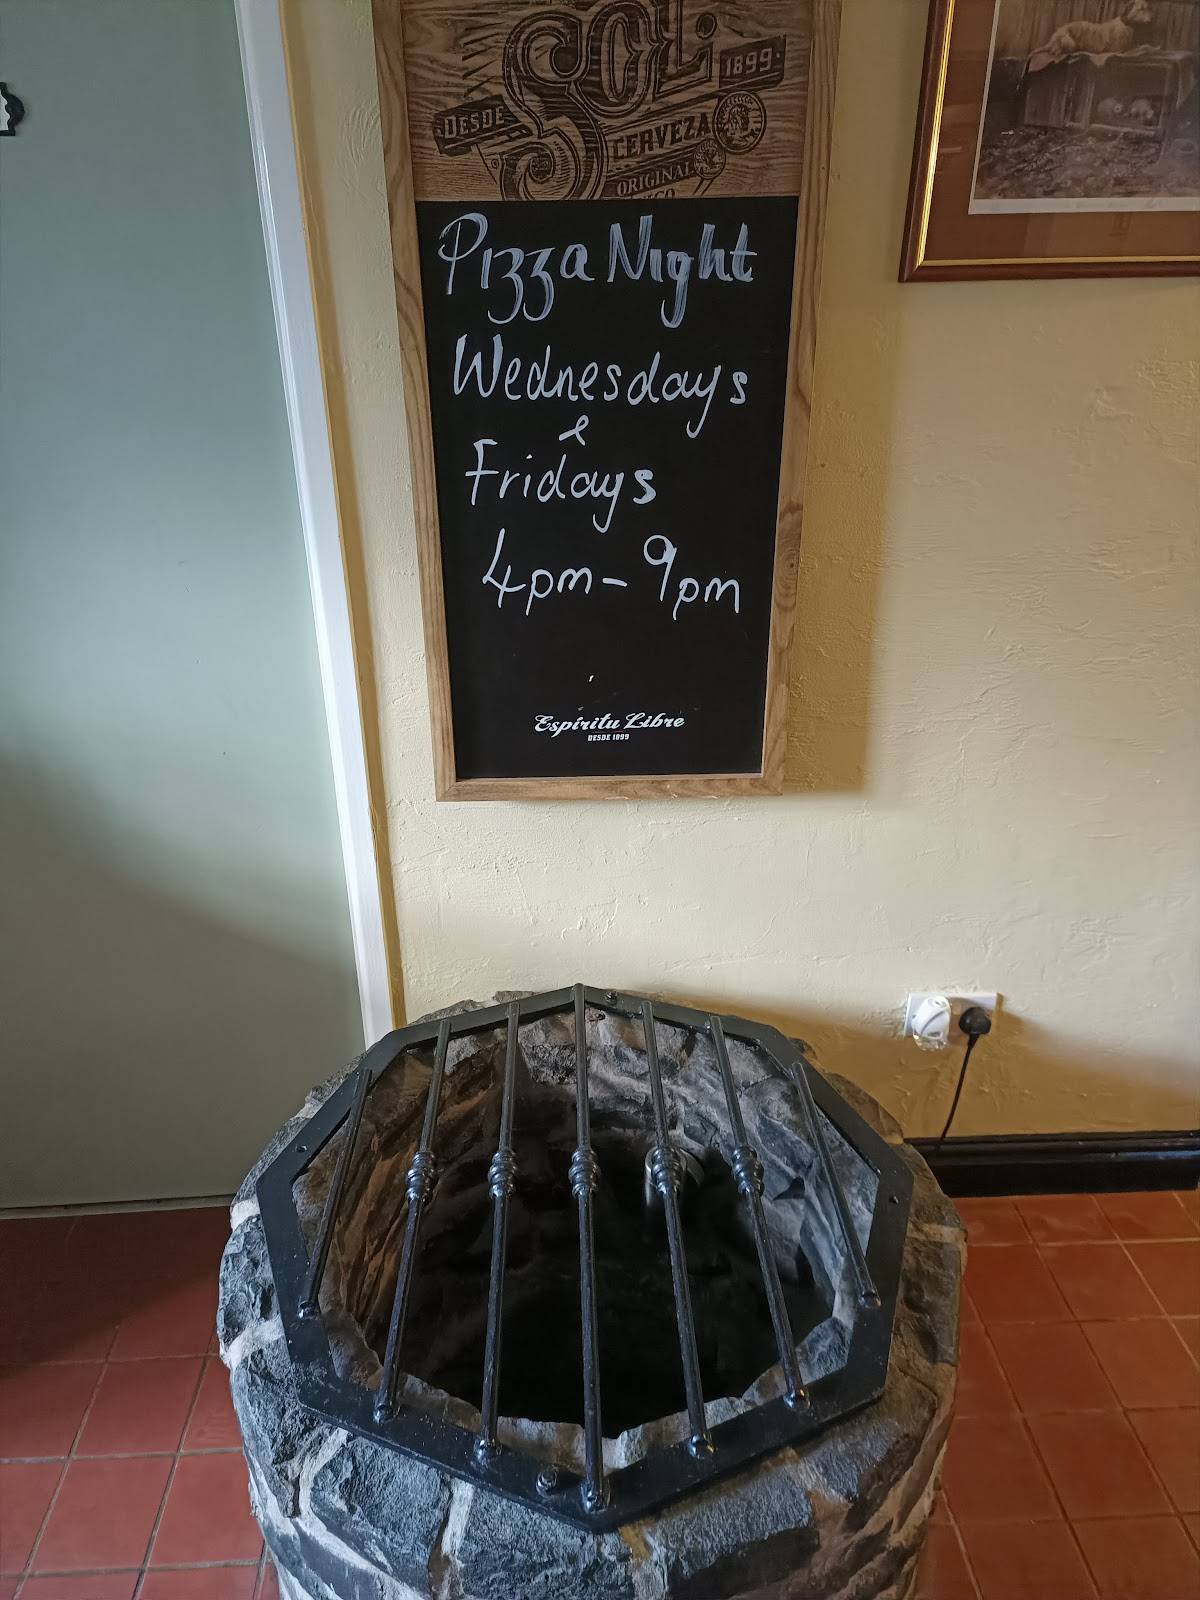 SOL
DESDE 1899
CERVEZA
ORIGINAL
Pizza Night
Wednesdays
&
Fridays
4pm - 9pm
Espíritu Libre
DESDE 1899